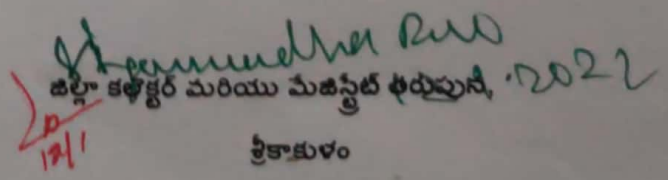 జిల్లా కలెక్టర్ మరియు మేజిస్ట్రేట్ తరుపున, .2022
శ్రీకాకుళం
12/1